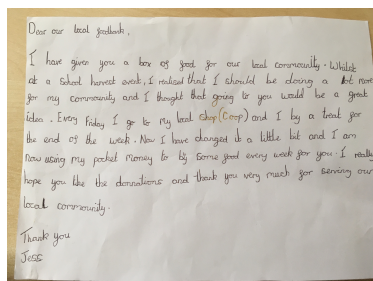 Dear our local foodbank,
I have given you a box of food for our local community. Whilst
at a School harvest event, I realised that I should be doing a lot more
for my community and I thought that going to you would be a great
idea. Every Friday I go to my local shop (Coop) and I by a treat for
the end of the week. Now I have changed it a little bit and I am
now using my pocket money to by some food every week for you. I really
hope you like the donnations and thank you very much for serving our
local community.
Thank you
Jess